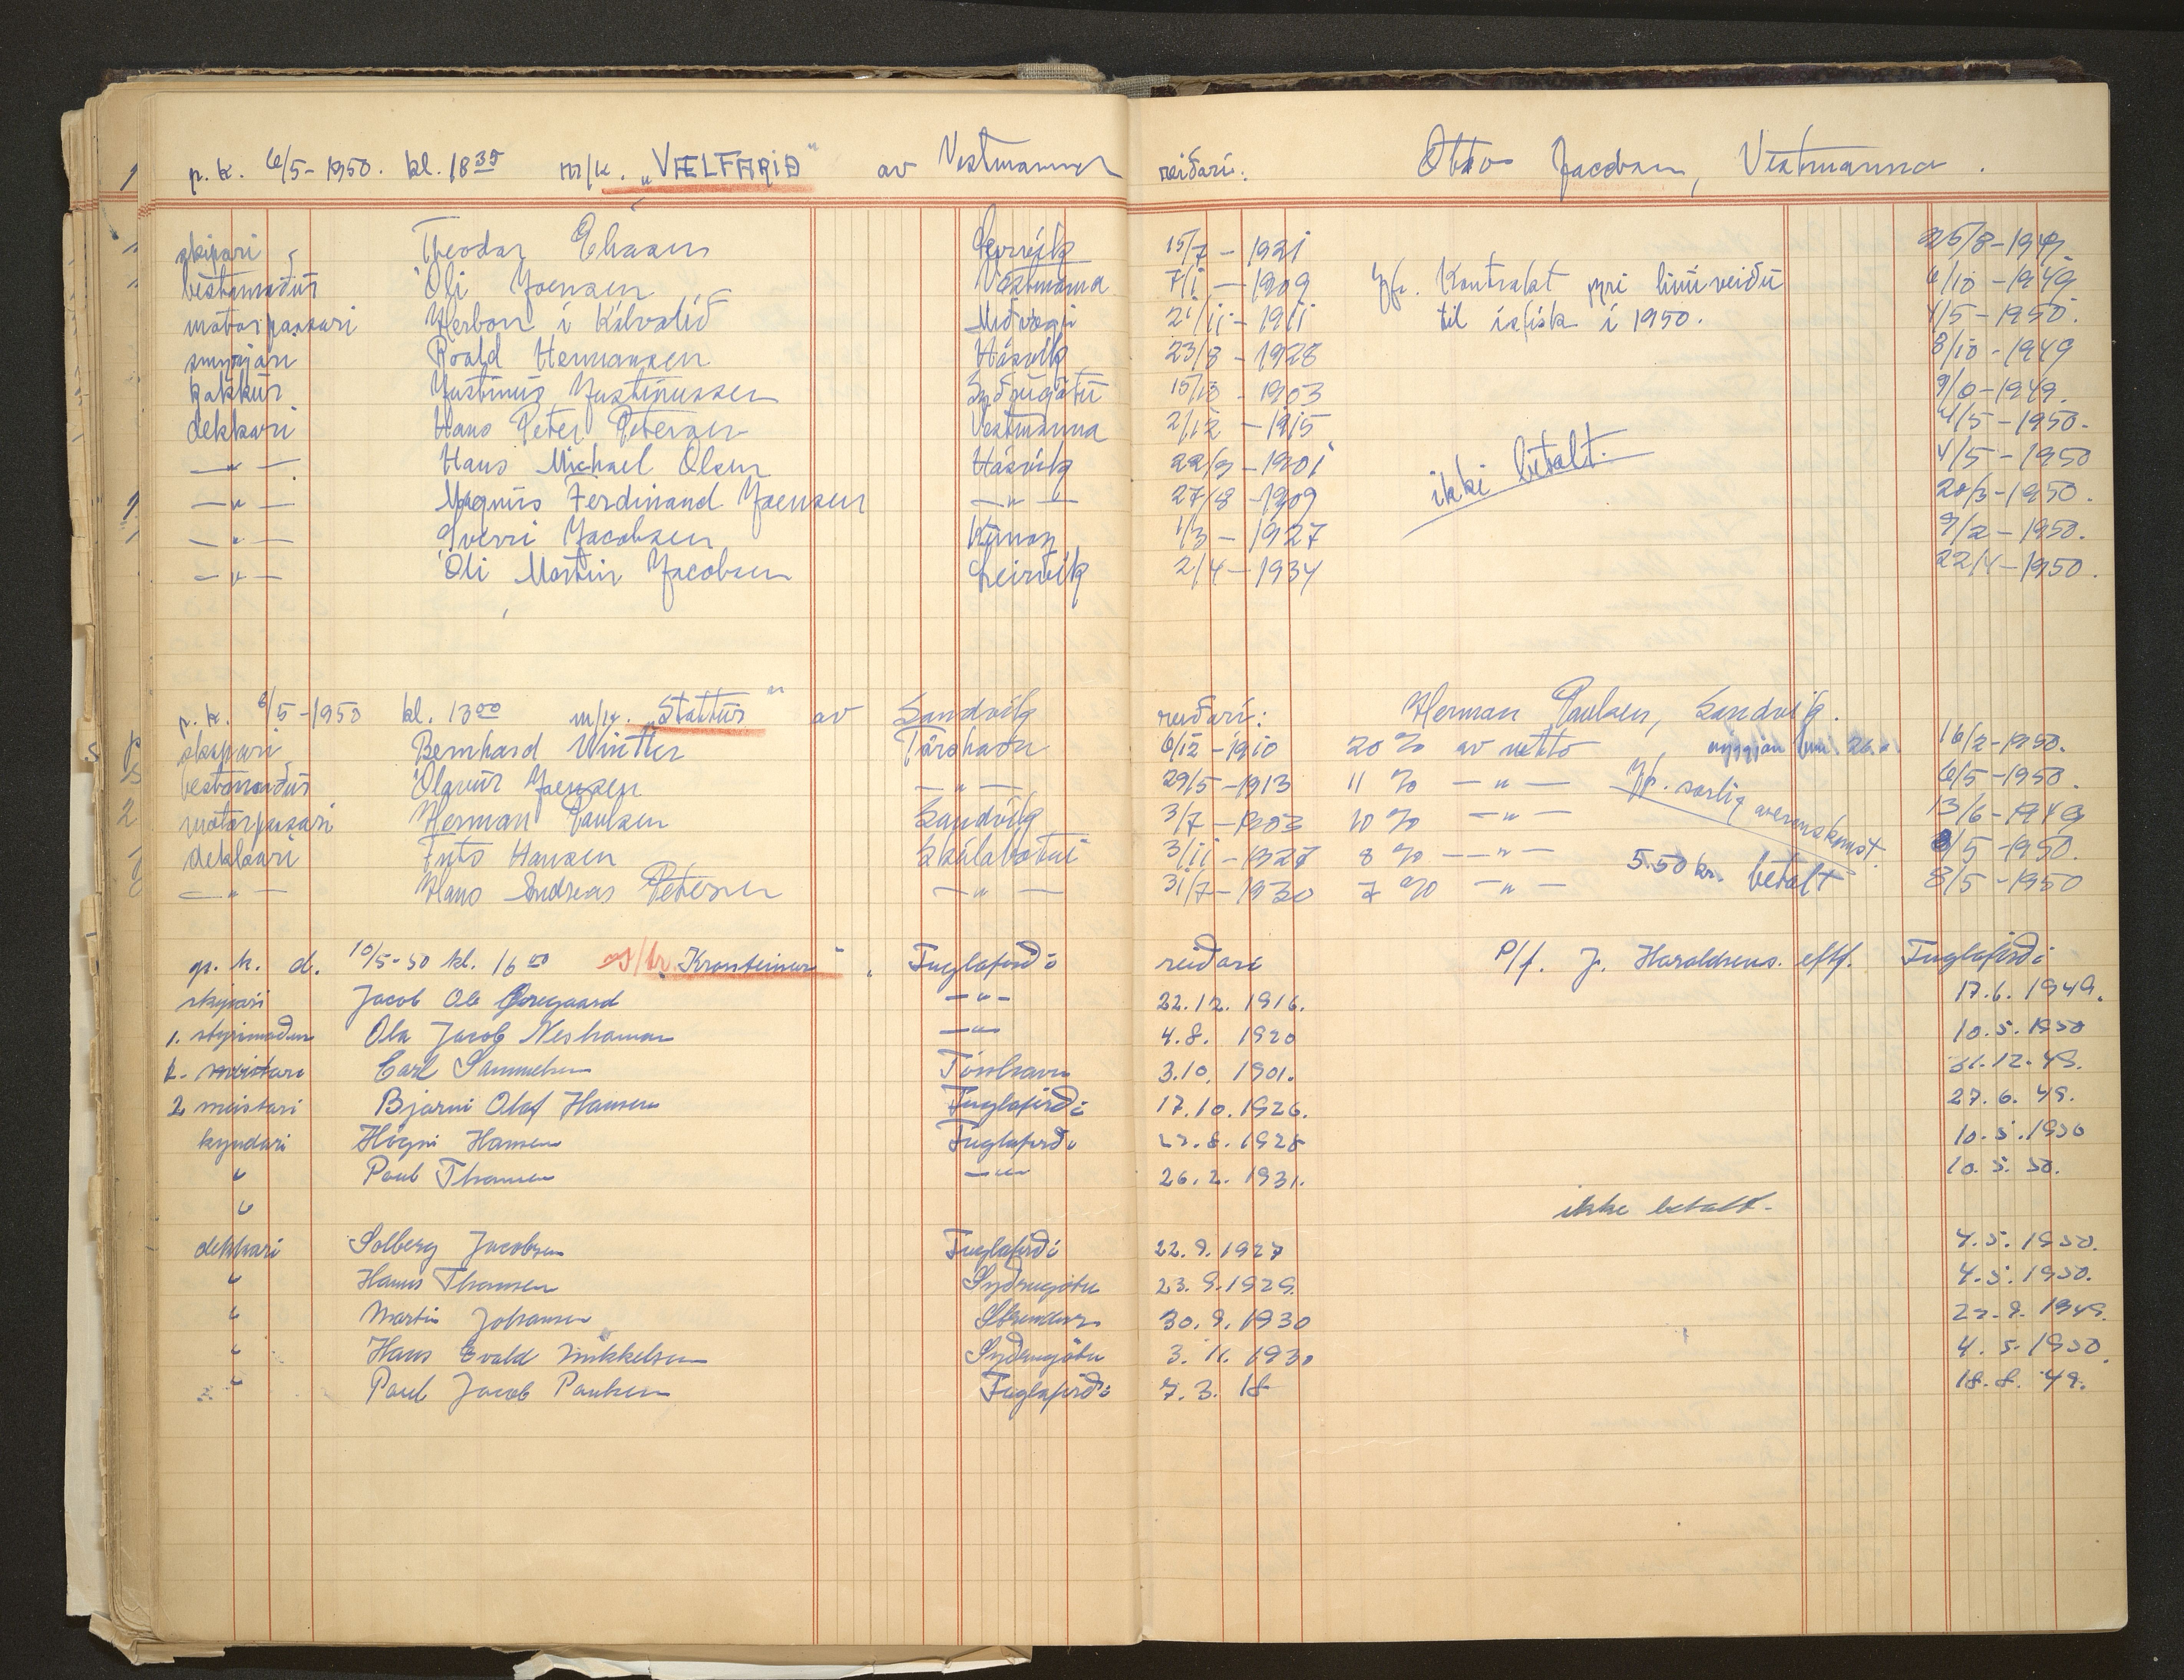 p. k. 6/5-1950. kl. 18 35 m/k. „VÆLFARIÐ" av Vestmanna reiðari: Otto Jacobsen, Vestmanna.
skipari Theodor Eliasen Leirvík 15/7 - 1921 25/8-1949
bestimaður Óli Joensen Vestmanna 7/1 - 1909 Jfr. Kontrakt fyri línuveiðu 6/10-1949
motorpassari Herborn í Kálvalíð Miðvági 21/11-1911 til ísfisk í 1950. 4/5-1950.
smyrjari Roald Hermansen Hásvík 23/8-1928 8/10-1949
kokkur Justinus Justinussen Syðrugøtu 15/10-1903
dekkari Hans Peter Petersen Vestmanna 2/12-1915 4/5-1950.
—"— Hans Michael Olsen Hásvík 22/9-1901 ikki betalt. 4/5-1950
—"— Magnus Ferdinand Joensen —"— 27/8-1909 20/3-1950.
—"— Sverri Jacobsen Kunoy 1/3-1927 9/2-1950.
—"— Óli Martin Jacobsen Leirvík 2/4-1934 22/4-1950.
p. k. 6/5-1950 kl. 13 00 m/k. „Stattus" av Sandvík reiðari: Herman Paulsen, Sandvík.
skipari Bernhard Winther Tórshavn 6/12-1910 20 % av netto 16/2-1950.
bestimaður Ólavur Joensen —"— 29/5-1913 11 % —"— Jfr. særlig overenskomst. 6/5-1950.
motorpassari Herman Paulsen Sandvík 3/7-1903 10 % —"— 13/6-1949
dekkari Fritz Hansen Skálabotni 3/11-1927 8 % —"— 5.50 kr. betalt 8/5-1950.
—"— Hans Andreas Petersen —"— 31/7-1930 7 % —"— 8/5-1950
p. k. d. 10/5-50 kl. 16 00 s/tr. „Kronsteinur" Fuglafirði reiðari P/f. J. Haraldsens eftf. Fuglafirði
skipari Jacob Ole Øregaard —"— 22.12.1916. 17.6.1949.
1. stýrimaður Ola Jacob Neshamar —"— 4.8.1920 10.5.1950
1. meistari Carl Samuelsen Tórshavn 3.10.1901. 31.12.49.
2 meistari Bjarni Olaf Hansen Fuglafirði 17.10.1926. 27.6.49.
kyndari Høgni Hansen Fuglafirði 10.5.1950
" Poul Thomsen —"— 26.2.1931. 10.5.50.
" ikke betalt.
dekkari Solberg Jacobsen Fuglafirði 22.9.1927 4.5.1950.
" Hanus Thomsen Syðrugøtu 23.9.1929. 4.5.1950.
" Martin Johansen Strendur 30.9.1930
" Hans Evald Mikkelsen Syðrugøtu 3.11.1930 4.5.1950.
" Poul Jacob Poulsen Fuglafirði 7.3.18 18.8.49.